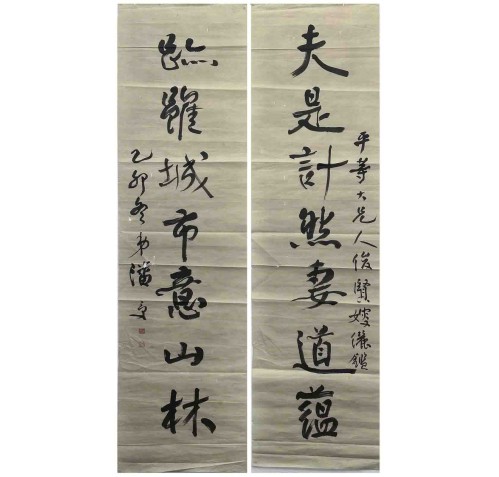 平等大兄人俊賢嫂儷鑑
夫是計然妻道蘊
跡雖城市意山林
乙卯冬弟潘受